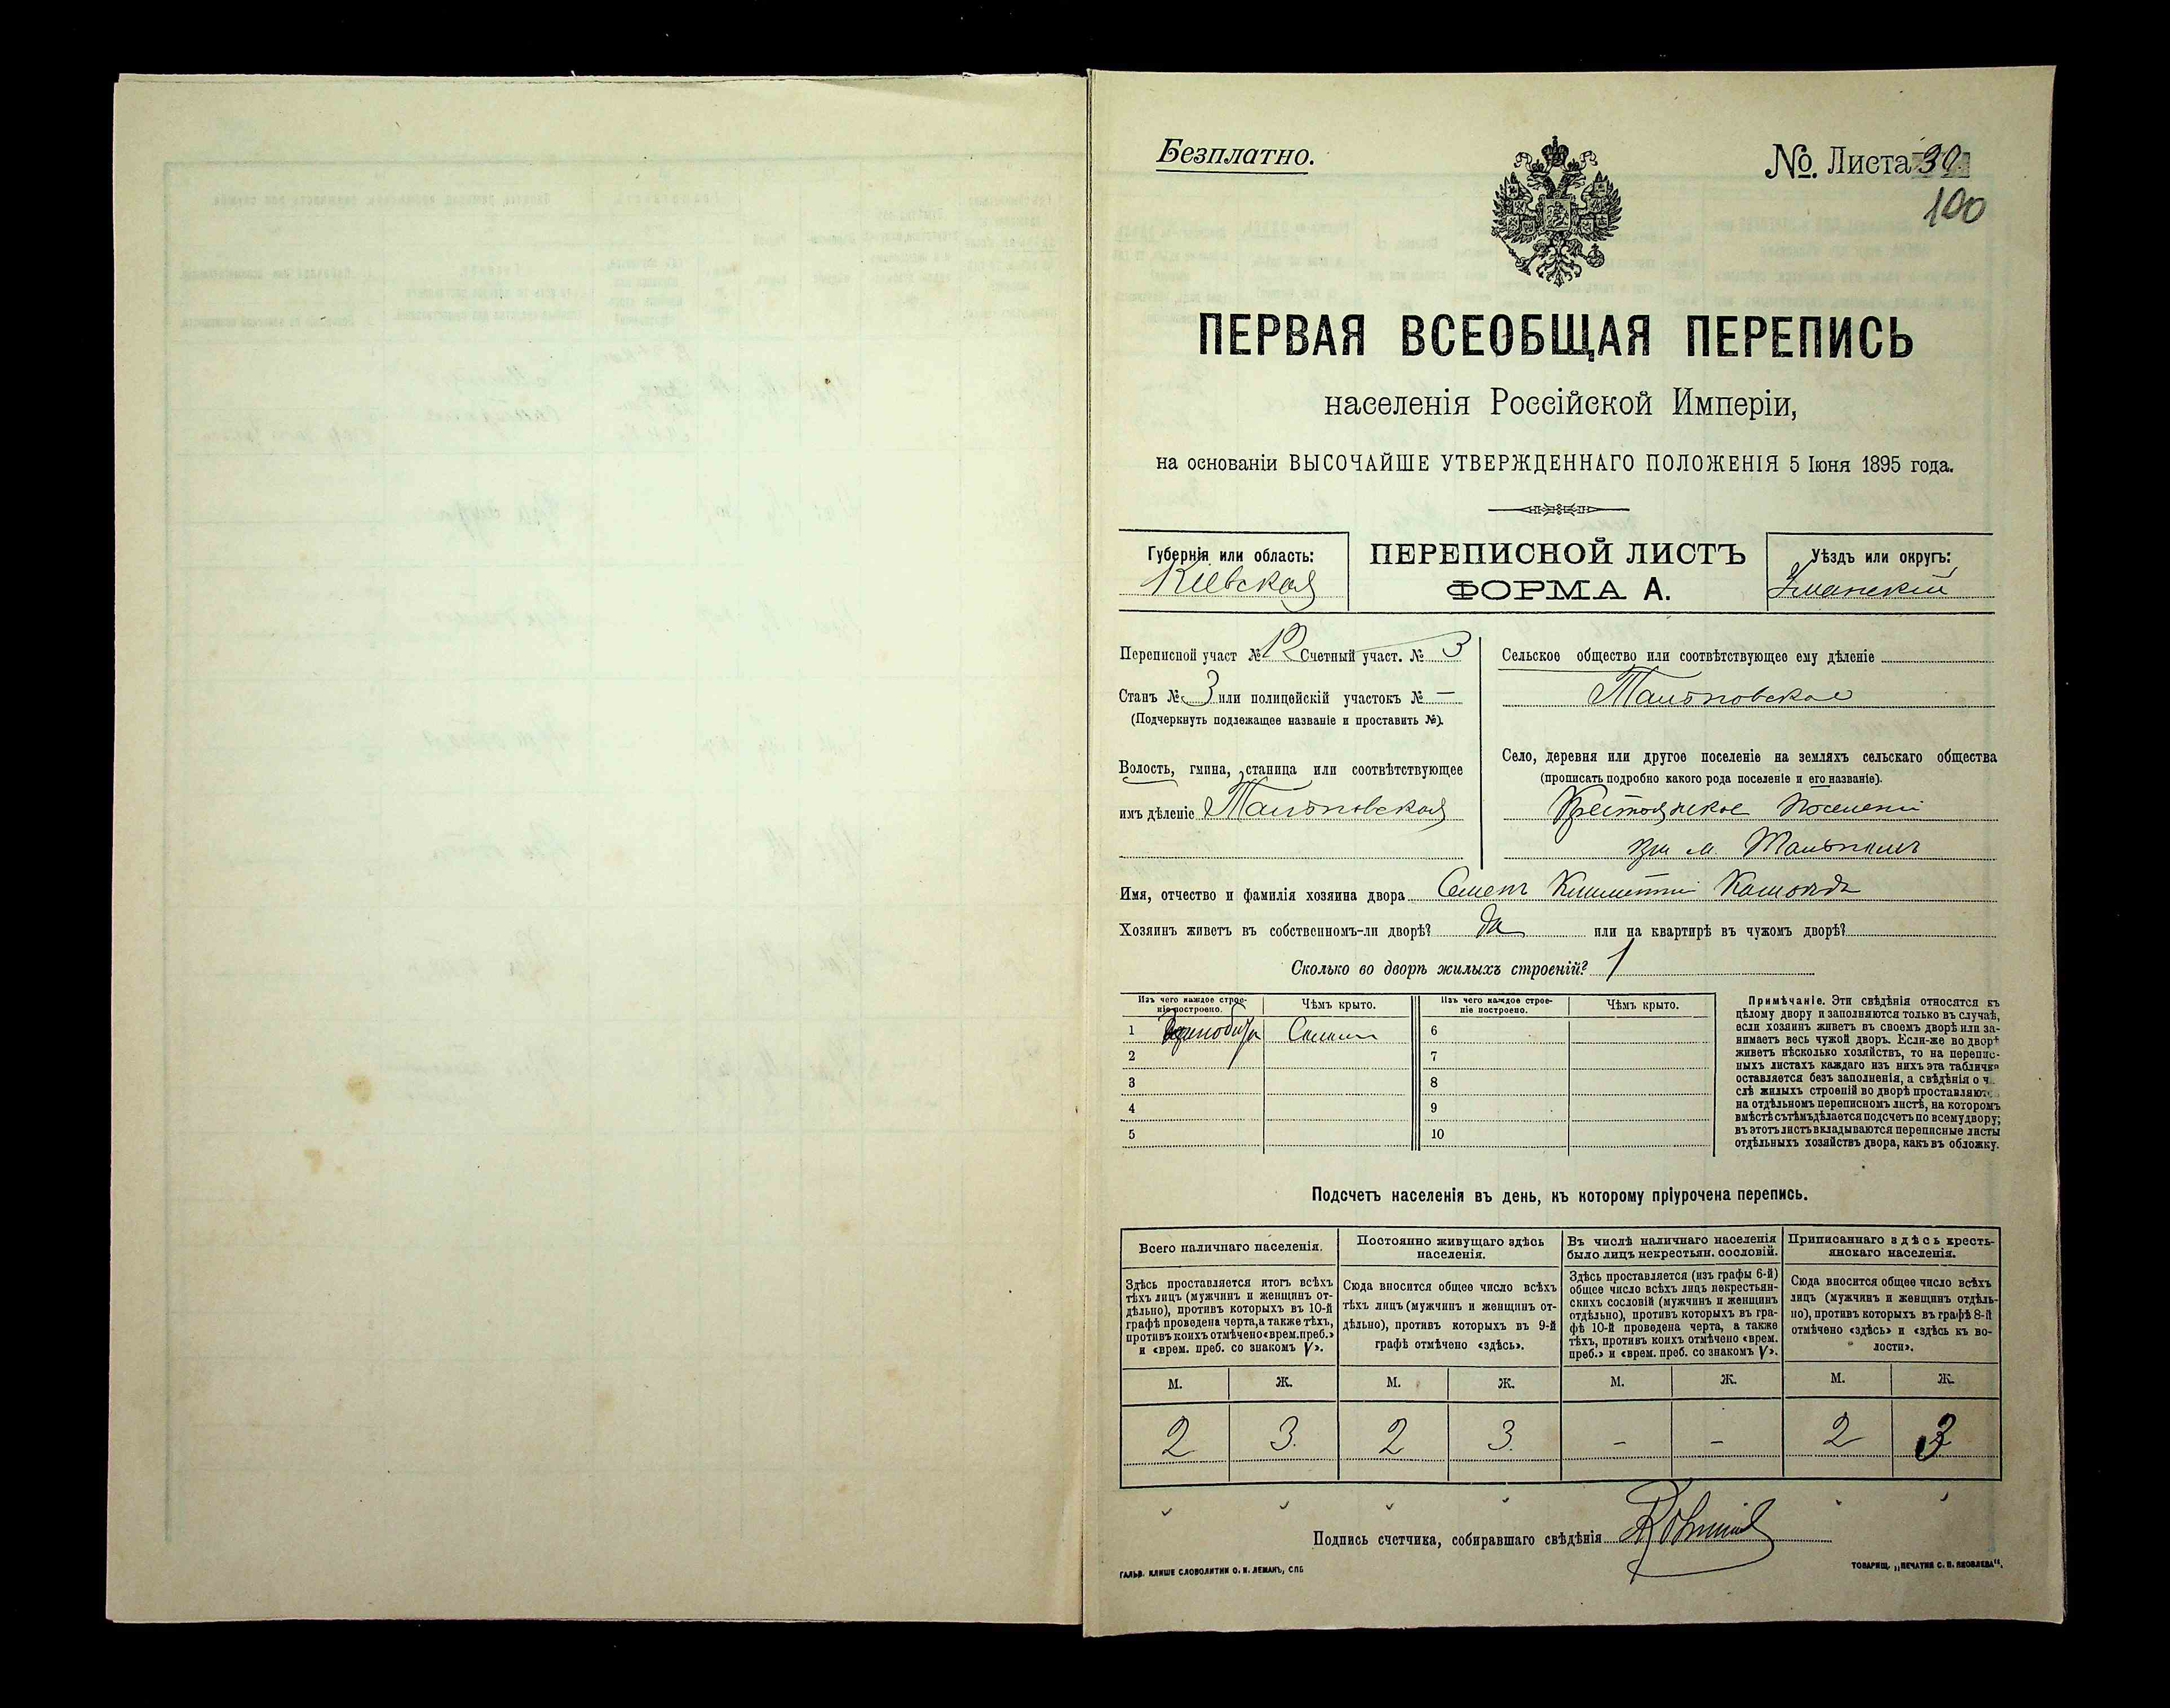 Безплатно.
№. Листа 39
100
ПЕРВАЯ ВСЕОБЩАЯ ПЕРЕПИСЬ
населенія Россійской Имперіи,
на основаніи ВЫСОЧАЙШЕ УТВЕРЖДЕННАГО ПОЛОЖЕНІЯ 5 Іюня 1895 года.
Губернія или область:
Кіевская
ПЕРЕПИСНОЙ ЛИСТЪ
ФОРМА А.
Уѣздъ или округъ:
Уманскій
Переписной участ № 12 Счетный участ. № 3
Станъ № 3 или полицейскій участокъ № —
(Подчеркнуть подлежащее названіе и проставить №).
Волость, гмина, станица или соотвѣтствующее
имъ дѣленіе Тальновская
Сельское общество или соотвѣтствующее ему дѣленіе
Тальновское
Село, деревня или другое поселеніе на земляхъ сельскаго общества
(прописать подробно какого рода поселеніе и его названіе).
Крестьянское поселеніе
при м. Тальномъ
Имя, отчество и фамилія хозяина двора Семенъ
Хозяинъ живетъ въ собственномъ-ли дворѣ? да или на квартирѣ въ чужомъ дворѣ?
Сколько во дворѣ жилыхъ строеній? 1
Изъ чего каждое строе-
ніе построено.
Чѣмъ крыто.
Изъ чего каждое строе-
ніе построено.
Чѣмъ крыто.
1 6
2 7
3 8
4 9
5 10
Примѣчаніе. Эти свѣдѣнія относятся къ
цѣлому двору и заполняются только въ случаѣ,
если хозяинъ живетъ въ своемъ дворѣ или за-
нимаетъ весь чужой дворъ. Если-же во дворѣ
живетъ нѣсколько хозяйствъ, то на перепис-
ныхъ листахъ каждаго изъ нихъ эта табличка
оставляется безъ заполненія, а свѣдѣнія о чи-
слѣ жилыхъ строеній во дворѣ проставляются
на отдѣльномъ переписномъ листѣ, на которомъ
вмѣстѣ съ тѣмъ дѣлается подсчетъ по всему двору;
въ этотъ листъ вкладываются переписные листы
отдѣльныхъ хозяйствъ двора, какъ въ обложку.
Подсчетъ населенія въ день, къ которому пріурочена перепись.
Всего наличнаго населенія.
Здѣсь проставляется итогъ всѣхъ
тѣхъ лицъ (мужчинъ и женщинъ от-
дѣльно), противъ которыхъ въ 10-й
графѣ проведена черта, а также тѣхъ,
противъ коихъ отмѣчено «врем. преб.»
и «врем. преб. со знакомъ V».
Постоянно живущаго здѣсь
населенія.
Сюда вносится общее число всѣхъ
тѣхъ лицъ (мужчинъ и женщинъ от-
дѣльно), противъ которыхъ въ 9-й
графѣ отмѣчено «здѣсь».
Въ числѣ наличнаго населенія
было лицъ некрестьян. сословій.
Здѣсь проставляется (изъ графы 6-й)
общее число всѣхъ лицъ некрестьян-
скихъ сословій (мужчинъ и женщинъ
отдѣльно), противъ которыхъ въ гра-
фѣ 10-й проведена черта, а также
тѣхъ, противъ коихъ отмѣчено «врем.
преб.» и «врем. преб. со знакомъ V».
Приписаннаго здѣсь кресть-
янскаго населенія.
Сюда вносится общее число всѣхъ
лицъ (мужчинъ и женщинъ отдѣль-
но), противъ которыхъ въ графѣ 8-й
отмѣчено «здѣсь» и «здѣсь къ во-
лости».
М. Ж. М. Ж. М. Ж. М. Ж.
2 3. 2 3. – – 2 3
Подпись счетчика, собиравшаго свѣдѣнія
ГАЛЬВ. КЛИШЕ СЛОВОЛИТНИ О. И. ЛЕМАНЪ, СПБ
ТОВАРИЩ. „ПЕЧАТНЯ С. П. ЯКОВЛЕВА“.